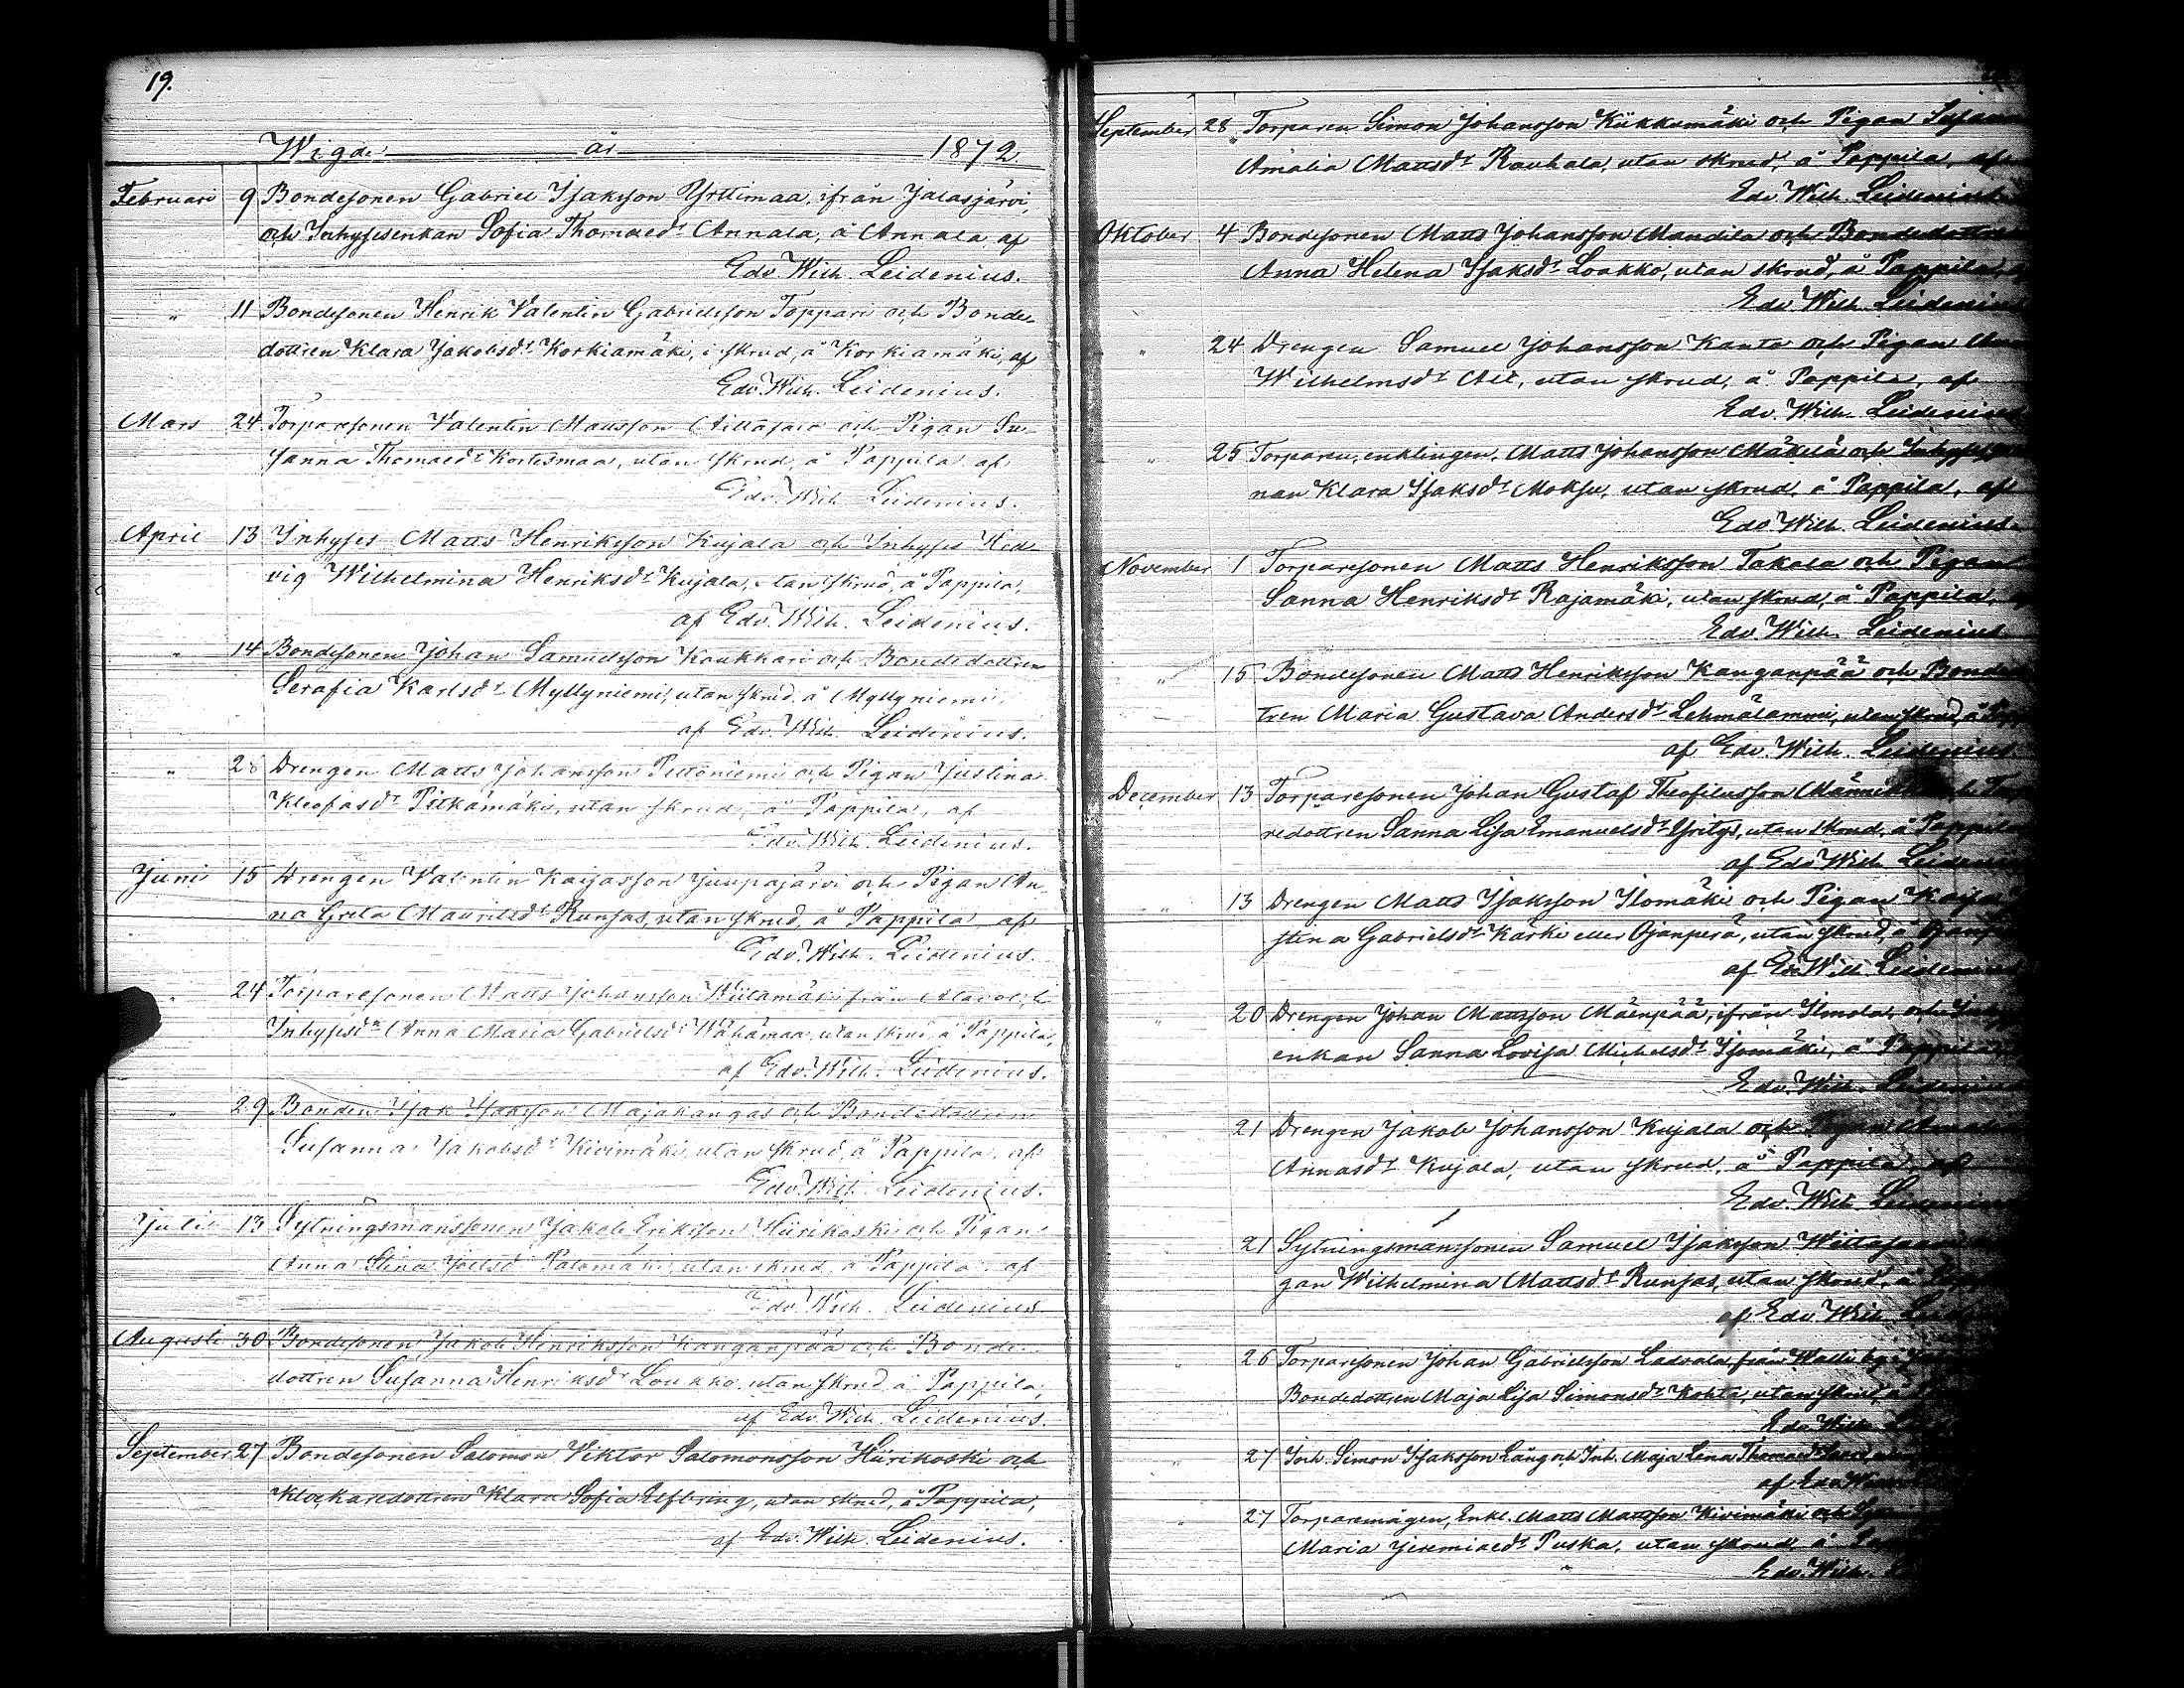 19.
Wigde år 1872
Februari 9 Bondesonen Gabriel Isaksson Yrttimaa, ifrån Jalasjärvi,
och Inhysesenkan Sofia Thomaedr Annala, å Annala af
Edv. Wilh. Leidenius.
" 11 Bondesonen Henrik Valentin Gabrielsson Toppari och Bonde-
dottren Klara Jakobsdr Korkiamäki, i skrud, å Korkiamäki, af
Edv. Wilh. Leidenius.
Mars 24 Torparesonen Valentin Mattsson och Pigan Su-
sanna Thomaedr Kortesmaa, utan skrud, å Pappila af
Edv. Wilh. Leidenius.
April 13 Inhyses Matts Henriksson Kujala och Inhyses Hed-
vig Wilhelmina Henriksdr Kujala, utan skrud, å Pappila,
af Edv. Wilh. Leidenius.
" 14 Bondesonen Johan Samuelsson Koukkari och Bondedottren
Serafia Karlsdr Myllyniemi, utan skrud, å Myllyniemi,
af Edv. Wilh. Leidenius.
" 28 Drengen Matts Johansson och Pigan Justina
Kleofasdr Pitkämäki, utan skrud, å Pappila, af
Edv. Wilh. Leidenius.
Juni 15 Drengen Valentin Kaijasson Juupajärvi och Pigan An-
na Greta Mauritsdr Runsas, utan skrud, å Pappila, af
Edv. Wilh. Leidenius.
" 24 Torparesonen Matts Johansson Wiitamäki från
Anna Maria Gabrielsdr Wähämaa, utan skrud, å Pappila,
af Edv. Wilh. Leidenius.
" 29 Bonden Isak Isaksson Majakangas och Bondedottren
Susanna Jakobsdr Kivimäki, utan skrud, å Pappila, af
Edv. Wilh. Leidenius.
Juli 13 Sytningsmanssonen Jakob Eriksson Hiirikoski och Pigan
Anna Stina Joelsdr Palomäki, utan skrud, å Pappila, af
Edv. Wilh. Leidenius.
Augusti 30 Bondesonen Jakob Henriksson Kanganpää och Bonde-
dottren Susanna Henriksdr Loukko, utan skrud, å Pappila,
af Edv. Wilh. Leidenius.
September 27 Bondesonen Salomon Viktor Salomonsson Hiirikoski och
Klockaredottren Klara Sofia Elfving, utan skrud, å Pappila,
af Edv. Wilh. Leidenius.
September 28 Torparen Simon Johansson Kükkumäki och Pigan
Amalia Mattsdr Rauhala, utan skrud, å Pappila, af
Edv. Wilh. Leidenius
Oktober 4 Bondesonen Matts Johansson Mandila och Bondedottren
Anna Helena Isaksdr Loukko, utan skrud, å Pappila,
Edv. Wilh. Leidenius
" 24 Drengen Samuel Johansson Kanto och Pigan
Wilhelmsdr Ali, utan skrud, å Pappila, af
Edv. Wilh. Leidenius
" 25 Torparen, enklingen, Matts Johansson Mäkelä och
nan Klara Isaksdr Moksu, utan skrud, å Pappila, af
Edv. Wilh. Leidenius.
November 1 Torparesonen Matts Henriksson Takala och Pigan
Sanna Henriksdr Rajamäki, utan skrud, å Pappila,
Edv. Wilh. Leidenius
" 15 Bondesonen Matts Henriksson Kanganpää och
tren Maria Gustava Andersdr Lehmälammi, utan skrud, å
af Edv. Wilh. Leidenius
December 13 Torparesonen Johan Gustaf Theofilusson
redottren Sanna Lisa Emanuelsdr Yritys, utan skrud, å Pappila
af Edv. Wilh. Leidenius
" 13 Drengen Matts Isaksson Ilomäki och Pigan Kajsa
Stina Gabrielsdr Kärki eller Ojanperä, utan skrud, å
af Edv. Wilh. Leidenius
" 20 Drengen Johan Mattsson Mäenpää, ifrån Ilmola, och
enkan Sanna Lovisa Michelsdr Isomäki, å Pappila
Edv. Wilh. Leidenius
21 Drengen Jakob Johansson Kujala och Pigan
Annasdr Kujala, utan skrud, å Pappila, af
Edv. Wilh. Leidenius
21 Sytningsmanssonen Samuel Isaksson
gan Wilhelmina Mattsdr Runsas, utan skrud, å
af Edv. Wilh.
" 26 Torparesonen Johan Gabrielsson Ladvala, från
Bondedottren Maja Lisa Simonsdr Kohta, utan skrud, å
Edv. Wilh.
" 27 Inh. Simon Isaksson Lång och Inh. Maja Lena
af Edv. Wilh.
" 27 Torparemågen, Enkl. Matts Mattsson Kivimäki och
Maria Jeremiaedr Puska, utan skrud, å
Edv. Wilh.